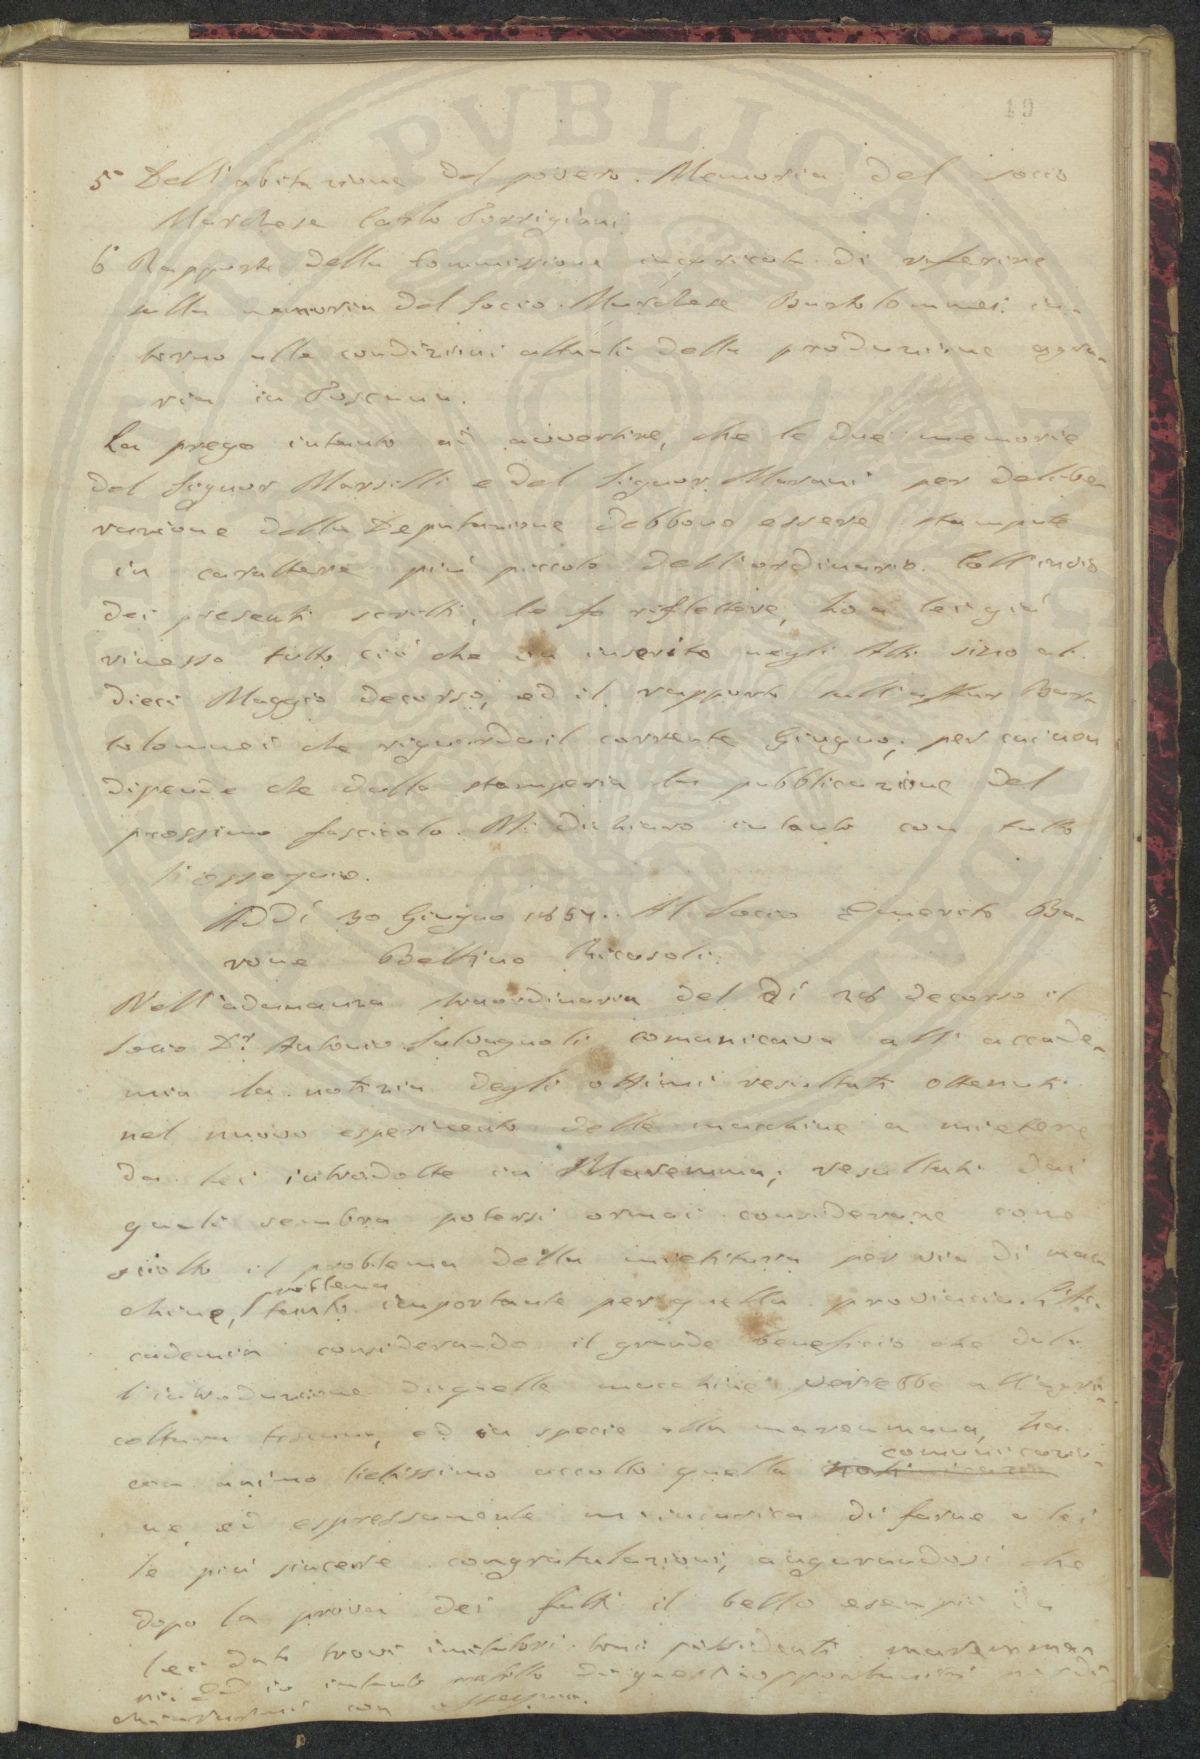 19
5° Dell'abitazione del povero. Memoria del socio
Marchese Carlo Torrigiani
6° Rapporto della Commissione incaricata di riferire
sulla memoria del Socio Marchese Bartolommei in-
torno alle condizioni attuali della produzione agra-
ria in Toscana.
La prego intanto ad avvertire, che le due memorie
del Signor Marsilli e del Signor Masani per delibe-
razione della Deputazione debbono essere stampate
in carattere più piccolo dell'ordinario. Coll'invio
dei presenti scritti, le fo riflettere, ho a lei già
rimesso tutto ciò che va inserito negli Atti sino al
dieci Maggio decorso, ed il rapporto sull'affar Bar-
tolommei che riguarda il corrente Giugno; per cui non
dipende che dalla stamperia la pubblicazione del
prossimo fascicolo. Mi dichiaro intanto con tutto
l'ossequio.
Addì 30 Giugno 1857. Al Socio Emerito Ba-
rone Bettino Ricasoli.
Nell'adunanza straordinaria del dì 28 decorso il
Socio Dr. Antonio Salvagnoli comunicava all'accade-
mia la notizia degli ottimi resultati ottenuti
nel nuovo esperimento delle macchine a mietere
da lei introdotte in Maremma; resultati dai
quali sembra potersi ormai considerare come
sciolto il problema della mietitura per via di mac
problema
chine, tanto importante per quella provincia. L'Ac-
cademia considerando il grande beneficio che dalla
l'introduzione di quelle macchine verrebbe all'agri-
coltura toscana, ed in specie alla maremmana, ha
comunicazio-
con animo lietissimo accolto quella
ne ed espressamente m'incarica di farne a lei
le più sincere congratulazioni, augurandosi che
dopo la prova dei fatti il bello esempio da
lei dato trovi imitatori tra i possidenti maremma
ni. Ed io intanto profitto di quest'opportunità per di
chiararmi con ossequio.
PVBLICAE